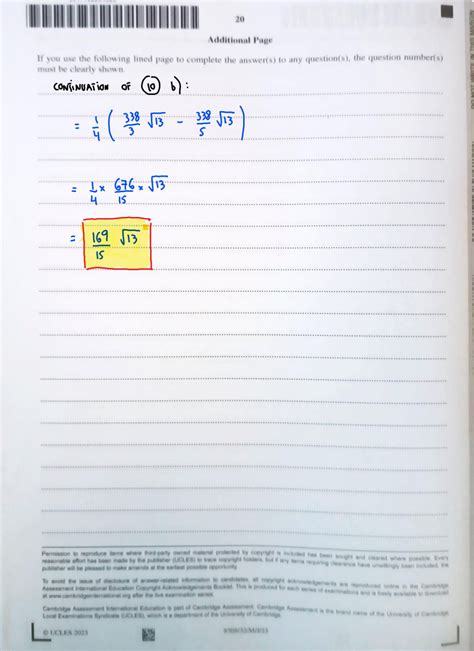 20
Additional Page
If you use the following lined page to complete the answer(s) to any question(s), the question number(s)
must be clearly shown.
CONTINUATION OF (10) b) :
= 1/4 ( 338/3 √13 - 338/5 √13 )
= 1/4 × 676/15 × √13
= 169/15 √13
Permission to reproduce items where third-party owned material protected by copyright is included has been sought and cleared where possible. Every
reasonable effort has been made by the publisher (UCLES) to trace copyright holders, but if any items requiring clearance have unwittingly been included, the
publisher will be pleased to make amends at the earliest possible opportunity.
To avoid the issue of disclosure of answer-related information to candidates, all copyright acknowledgements are reproduced online in the Cambridge
Assessment International Education Copyright Acknowledgements Booklet. This is produced for each series of examinations and is freely available to download
at www.cambridgeinternational.org after the live examination series.
Cambridge Assessment International Education is part of Cambridge Assessment. Cambridge Assessment is the brand name of the University of Cambridge
Local Examinations Syndicate (UCLES), which is a department of the University of Cambridge.
© UCLES 2023